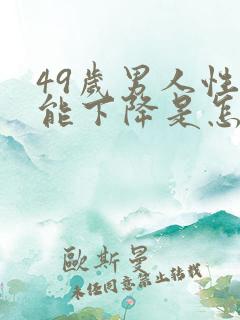 49歲男人性
能下降是怎
歐斯曼
未经同意禁止转载